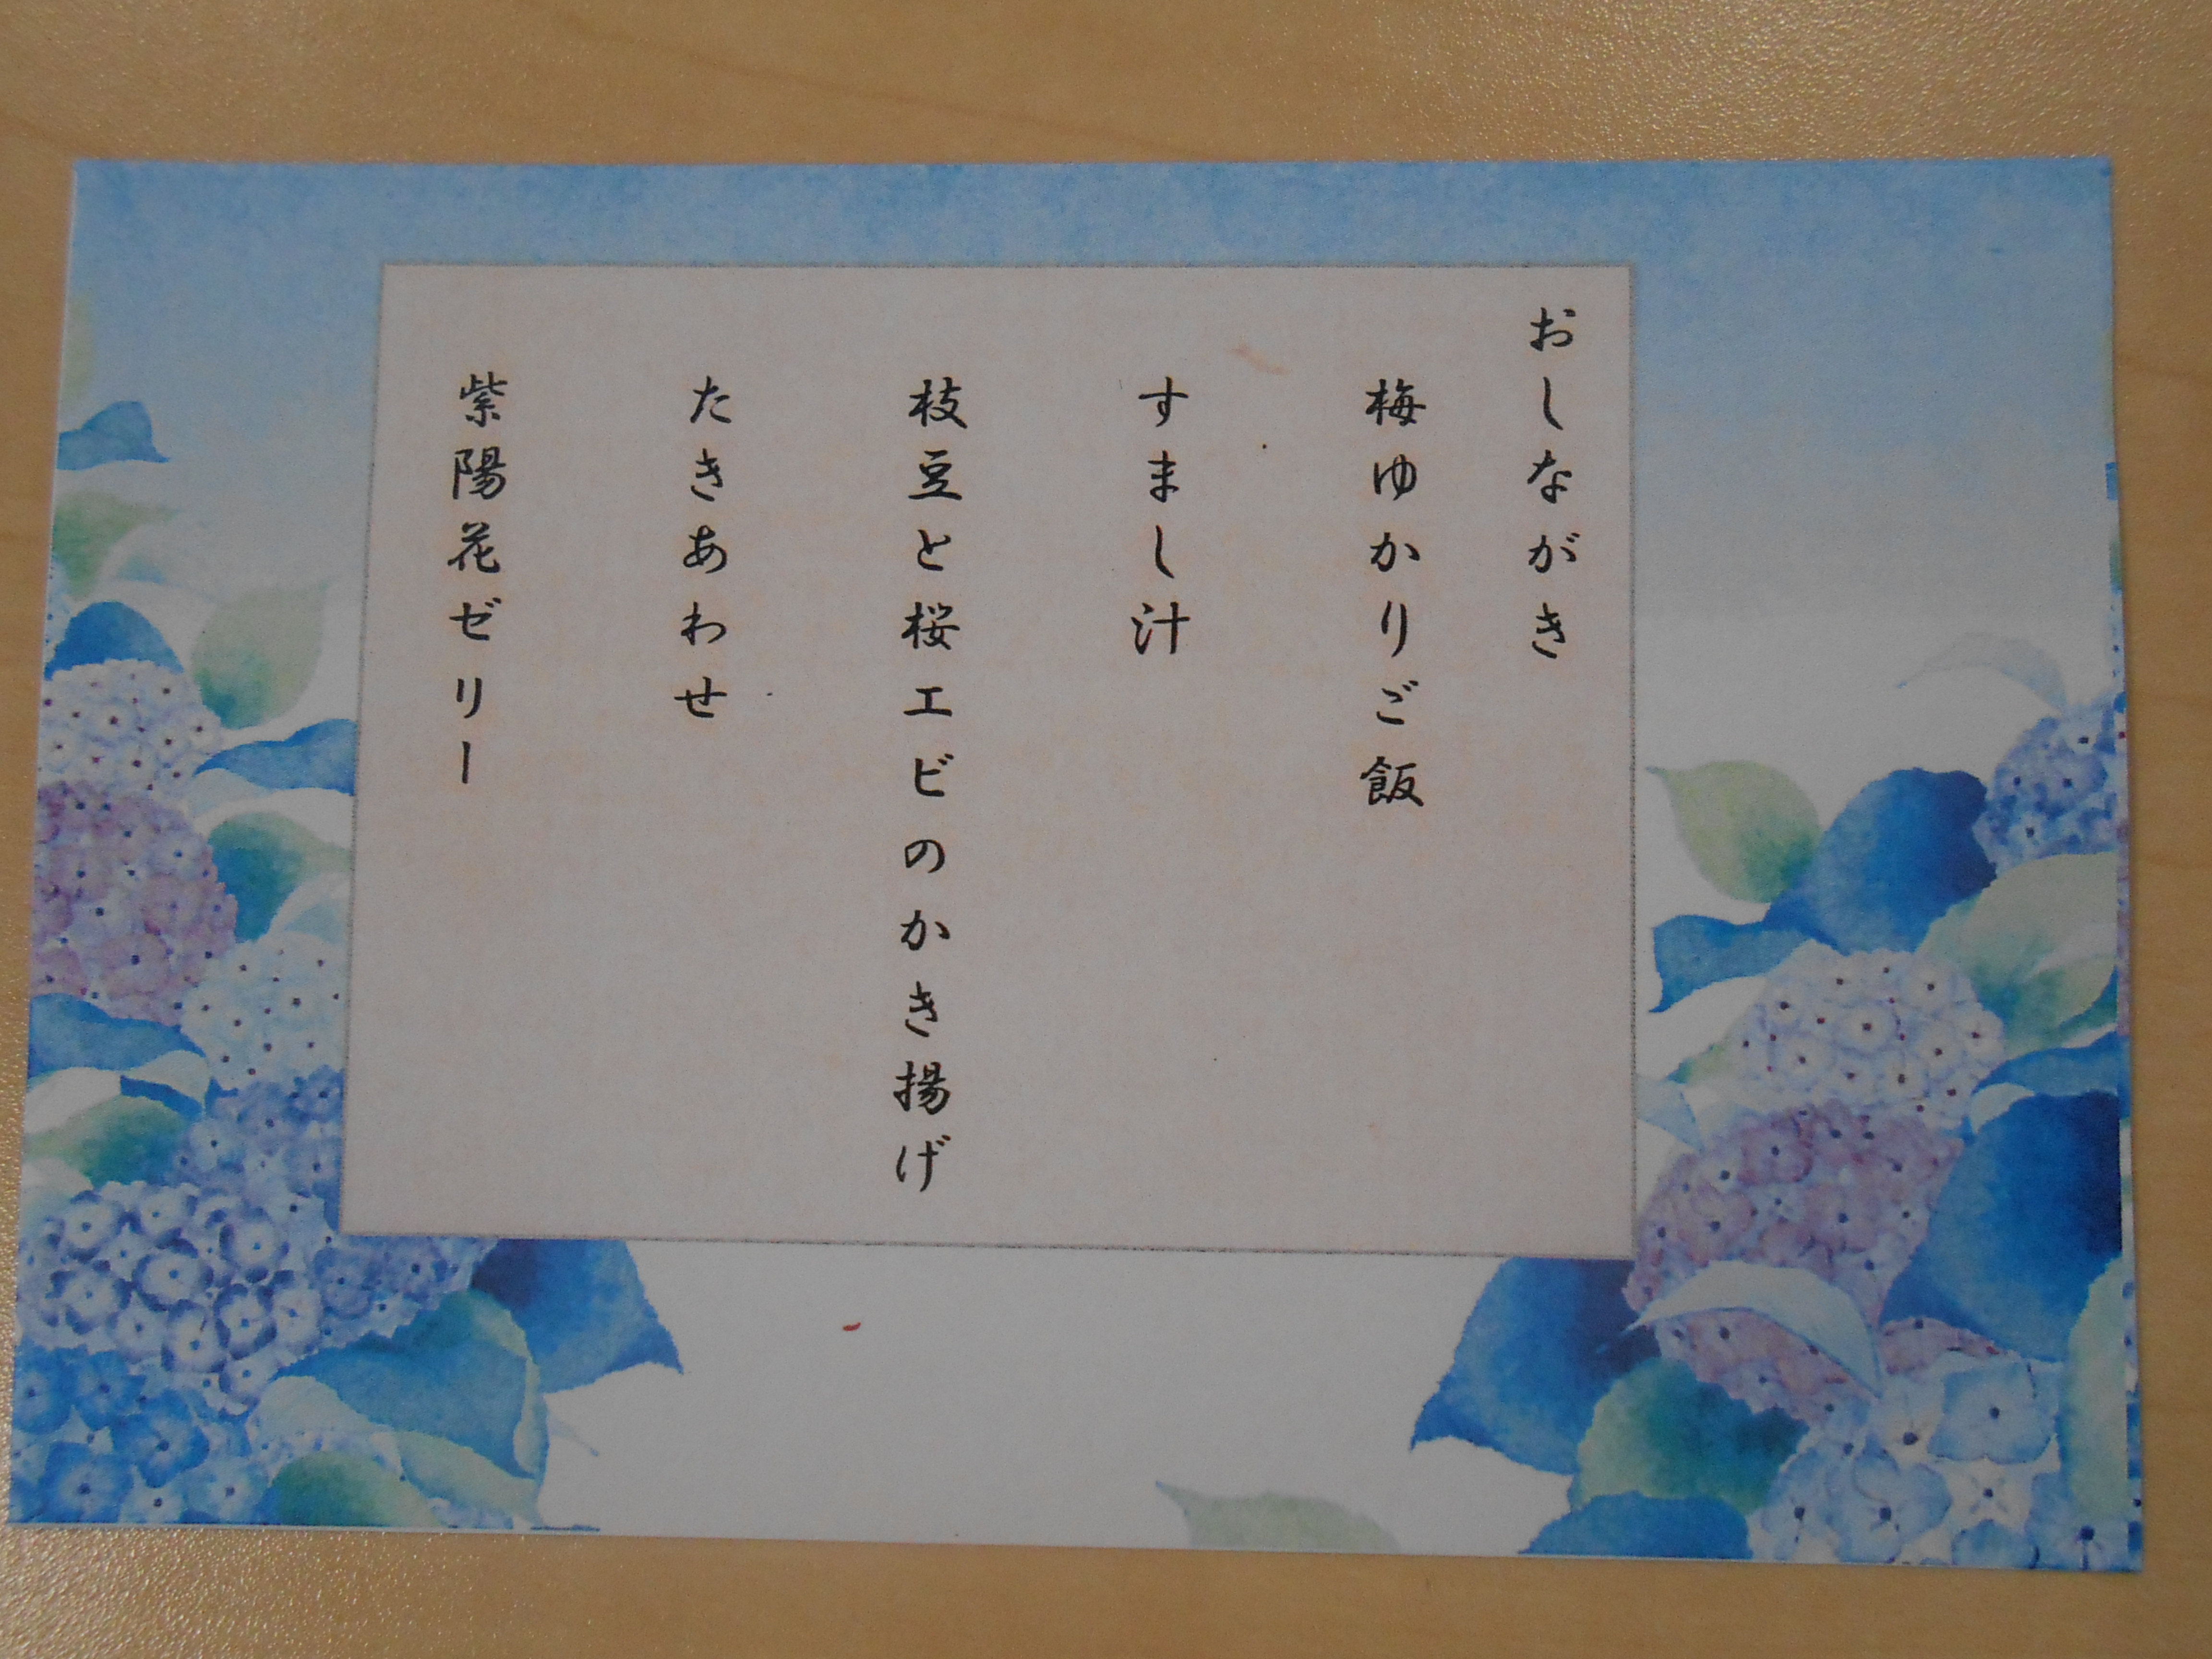 おしながき
梅ゆかりご飯
すまし汁
枝豆と桜エビのかき揚げ
たきあわせ
紫陽花ゼリー